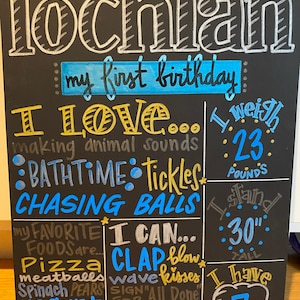 lochlan
my first birthday
I LOVE...
making animal sounds
BATHTIME
tickles
CHASING BALLS
I weigh
23
POUNDS
I stand
30"
TALL
I have
my FAVORITE
FOODS are...
Pizza
meatballs
Spinach PEARS
I CAN...
CLAP
blow
kisses
wave
SIGN